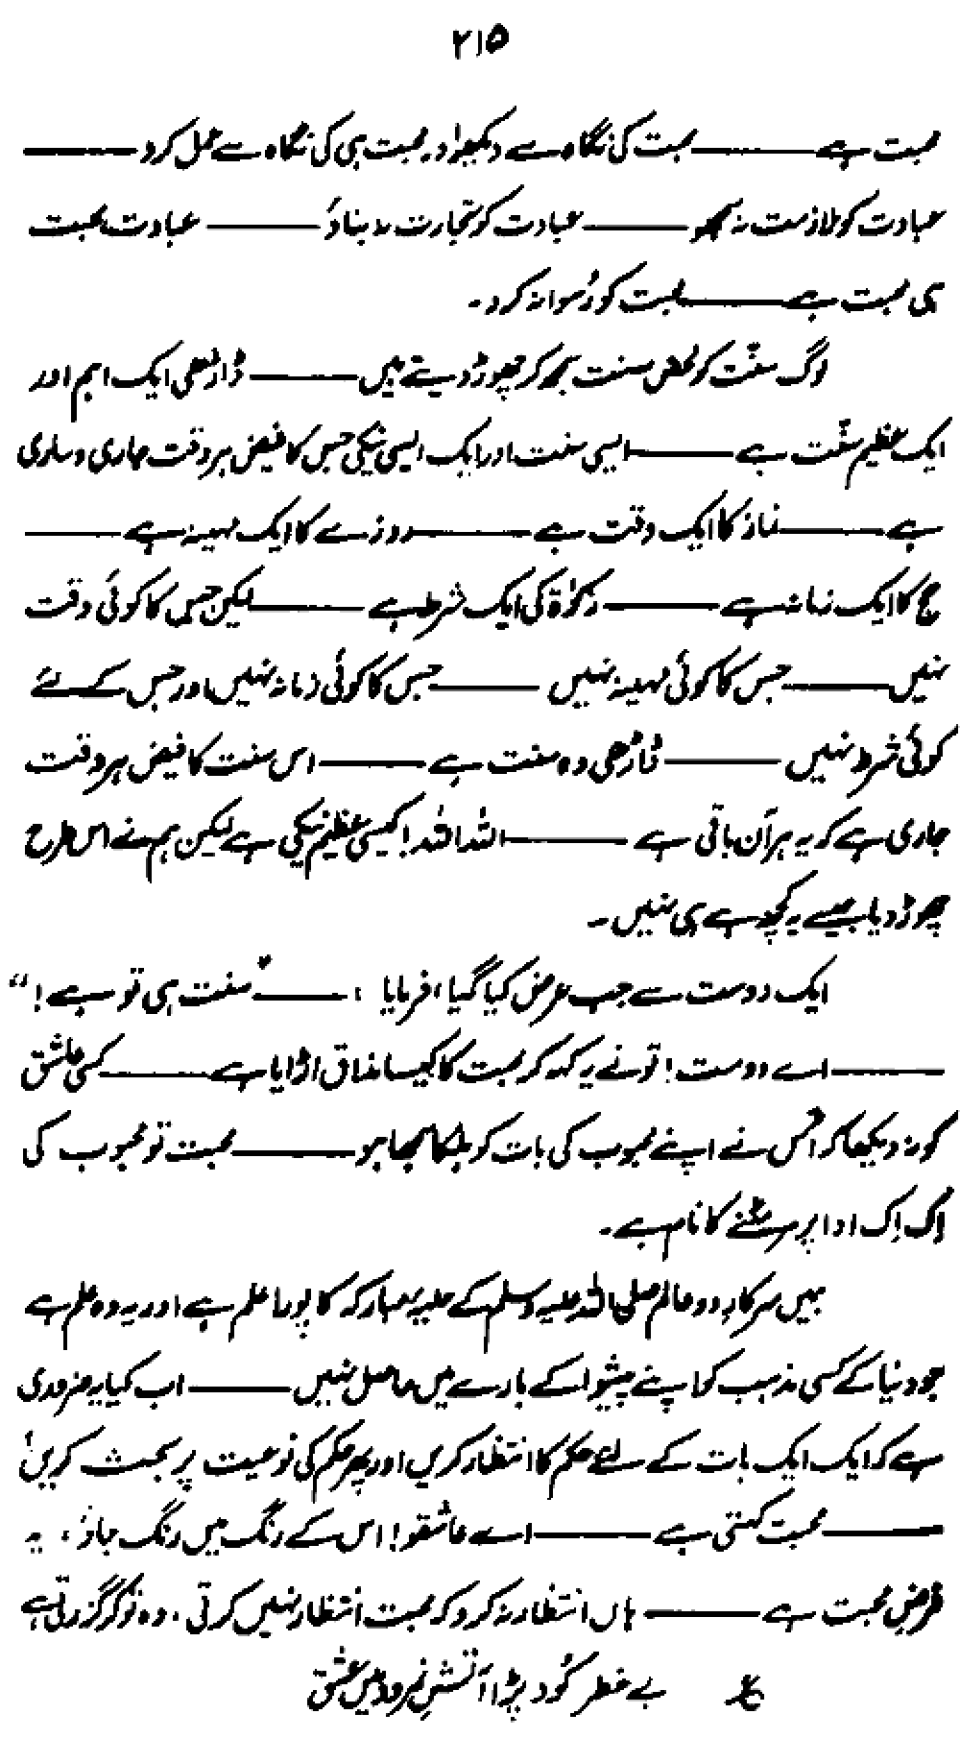 ۲۱۵
محبت ہے ——— محبت کی نگاہ سے دیکھو اور محبت ہی کی نگاہ سے عمل کرو ———
عبادت کو ملازمت نہ سمجھو ——— عبادت کو تجارت نہ بناؤ ——— عبادت، محبت
ہی محبت ہے ——— محبت کو رُسوا نہ کرو۔
لوگ سنّت کو محض سنت سمجھ کر چھوڑ دیتے ہیں ——— ڈاڑھی ایک اہم اور
ایک عظیم سنّت ہے ——— ایسی سنت اور ایک ایسی نیکی جس کا فیض ہر وقت جاری و ساری
ہے ——— نماز کا ایک وقت ہے ——— روزے کا ایک مہینہ ہے ———
حج کا ایک زمانہ ہے ——— زکوٰۃ کی ایک شرط ہے ——— لیکن جس کا کوئی وقت
نہیں ——— جس کا کوئی مہینہ نہیں ——— جس کا کوئی زمانہ نہیں اور جس کے لئے
کوئی شرط نہیں ——— ڈاڑھی وہ سنت ہے ——— اس سنت کا فیض ہر وقت
جاری ہے کہ یہ ہر آن باقی ہے ——— اللہ اللہ! کیسی عظیم نیکی ہے لیکن ہم نے اس طرح
چھوڑ دیا جیسے یہ کچھ ہے ہی نہیں۔
ایک دوست سے جب عرض کیا گیا، فرمایا : ——— "سنت ہی تو ہے!"
——— اے دوست! تو نے یہ کہہ کر محبت کا کیسا مذاق اڑایا ہے ——— کسی عاشق
کو نہ دیکھا کہ اُس نے اپنے محبوب کی بات کو ہلکا سمجھا ہو ——— محبت تو محبوب کی
اِک اِک ادا پر مر مٹنے کا نام ہے۔
ہمیں سرکارِ دو عالم صلی اللہ علیہ وسلم کے حلیہ مبارکہ کا پورا علم ہے اور یہ وہ علم ہے
جو دنیا کے کسی مذہب کو اپنے پیشوا کے بارے میں حاصل نہیں ——— اب کیا یہ ضروری
ہے کہ ایک ایک بات کے لئے حکم کا انتظار کریں اور پھر حکم کی نوعیت پر بحث کریں؟
——— محبت کہتی ہے ——— اے عاشقو! اس کے رنگ میں رنگ جاؤ، یہ
فرضِ محبت ہے ——— ہاں انتظار نہ کرو کہ محبت انتظار نہیں کرتی، وہ تو کر گزرتی ہے
ع بے خطر کُود پڑا آتشِ نمرود میں عشق